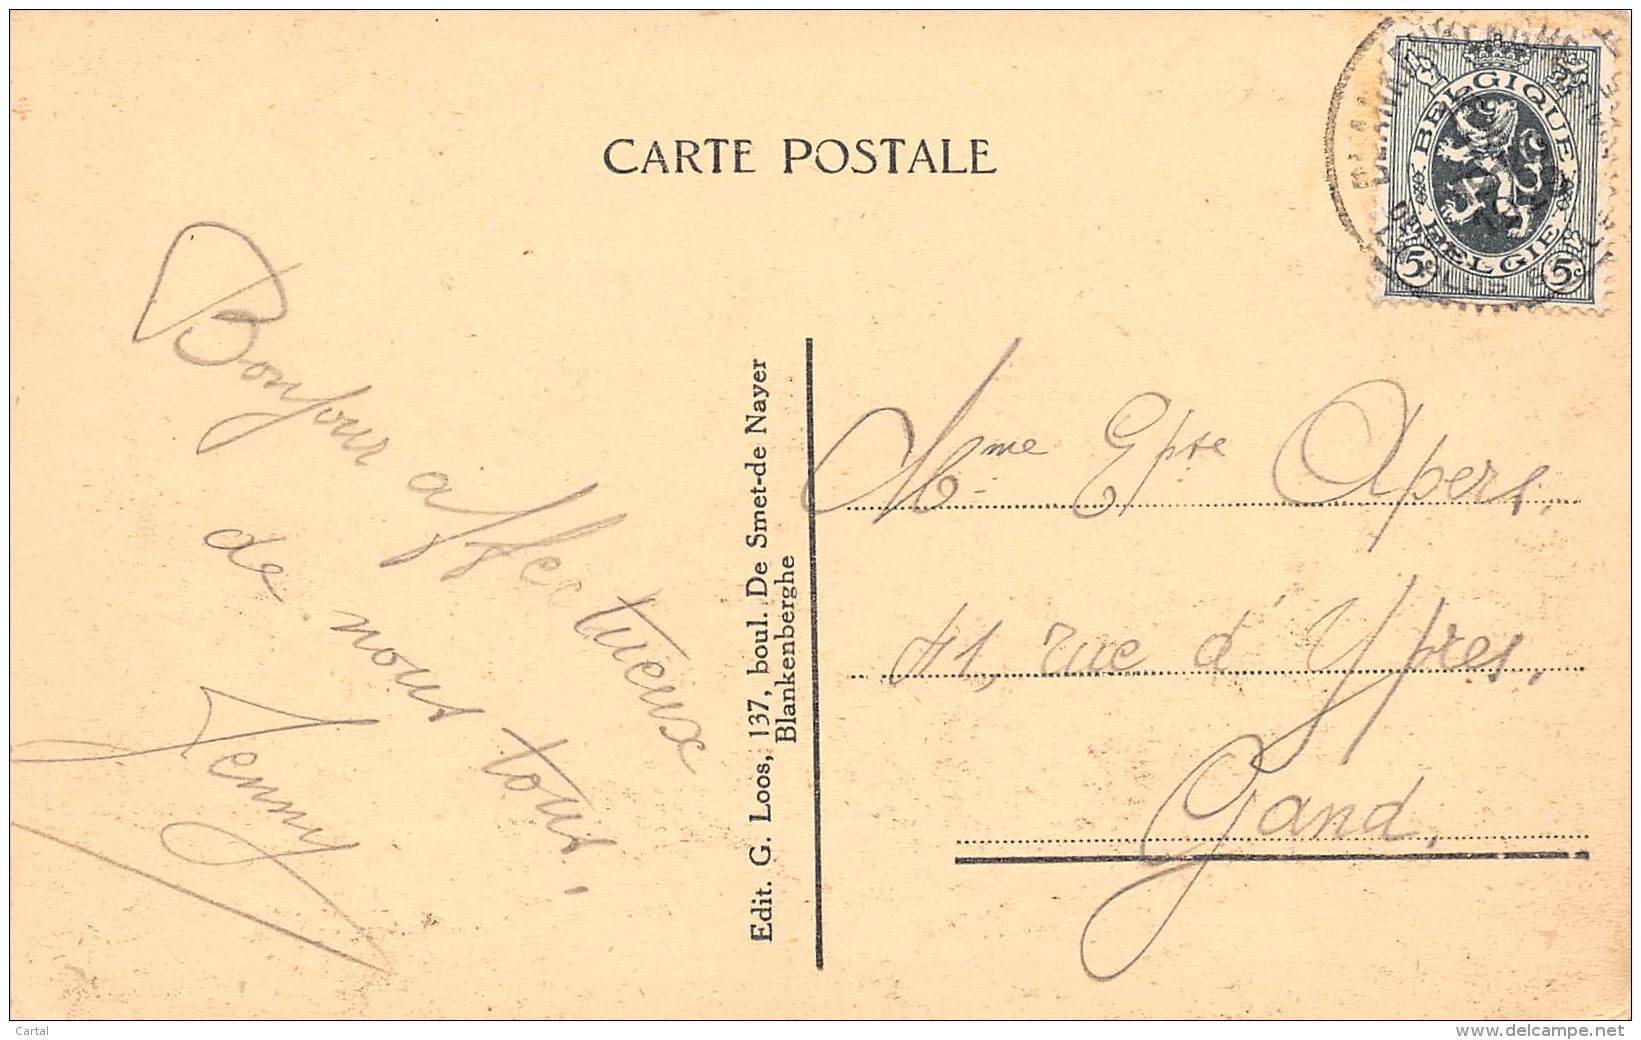 CARTE POSTALE
BELGIQUE
BELGIE
5c 5c
Bonjour affectueux
de nous tous.
Jenny
Edit. G. Loos, 137, boul. De Smet-de Nayer
Blankenberghe
Mme Gpre Apers,
41, rue d'Ypres,
Gand.
Cartal
www.delcampe.net